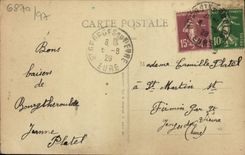 6870
197
CARTE POSTALE
EURE
29
15c
10
Bons
baisers de
Bourgtheroulde
Jeanne
Platel
Madame Camille Platel
à St Martin St
Firmin par St
Georges du Vièvre
Eure